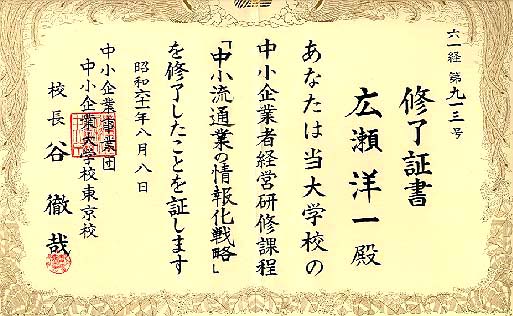 六一経 第九一三号
修了証書
広瀬洋一殿
あなたは当大学校の
中小企業者経営研修課程
「中小流通業の情報化戦略」
を修了したことを証します
昭和六十一年八月八日
中小企業事業団
中小企業大学校東京校
校長 谷 徹哉